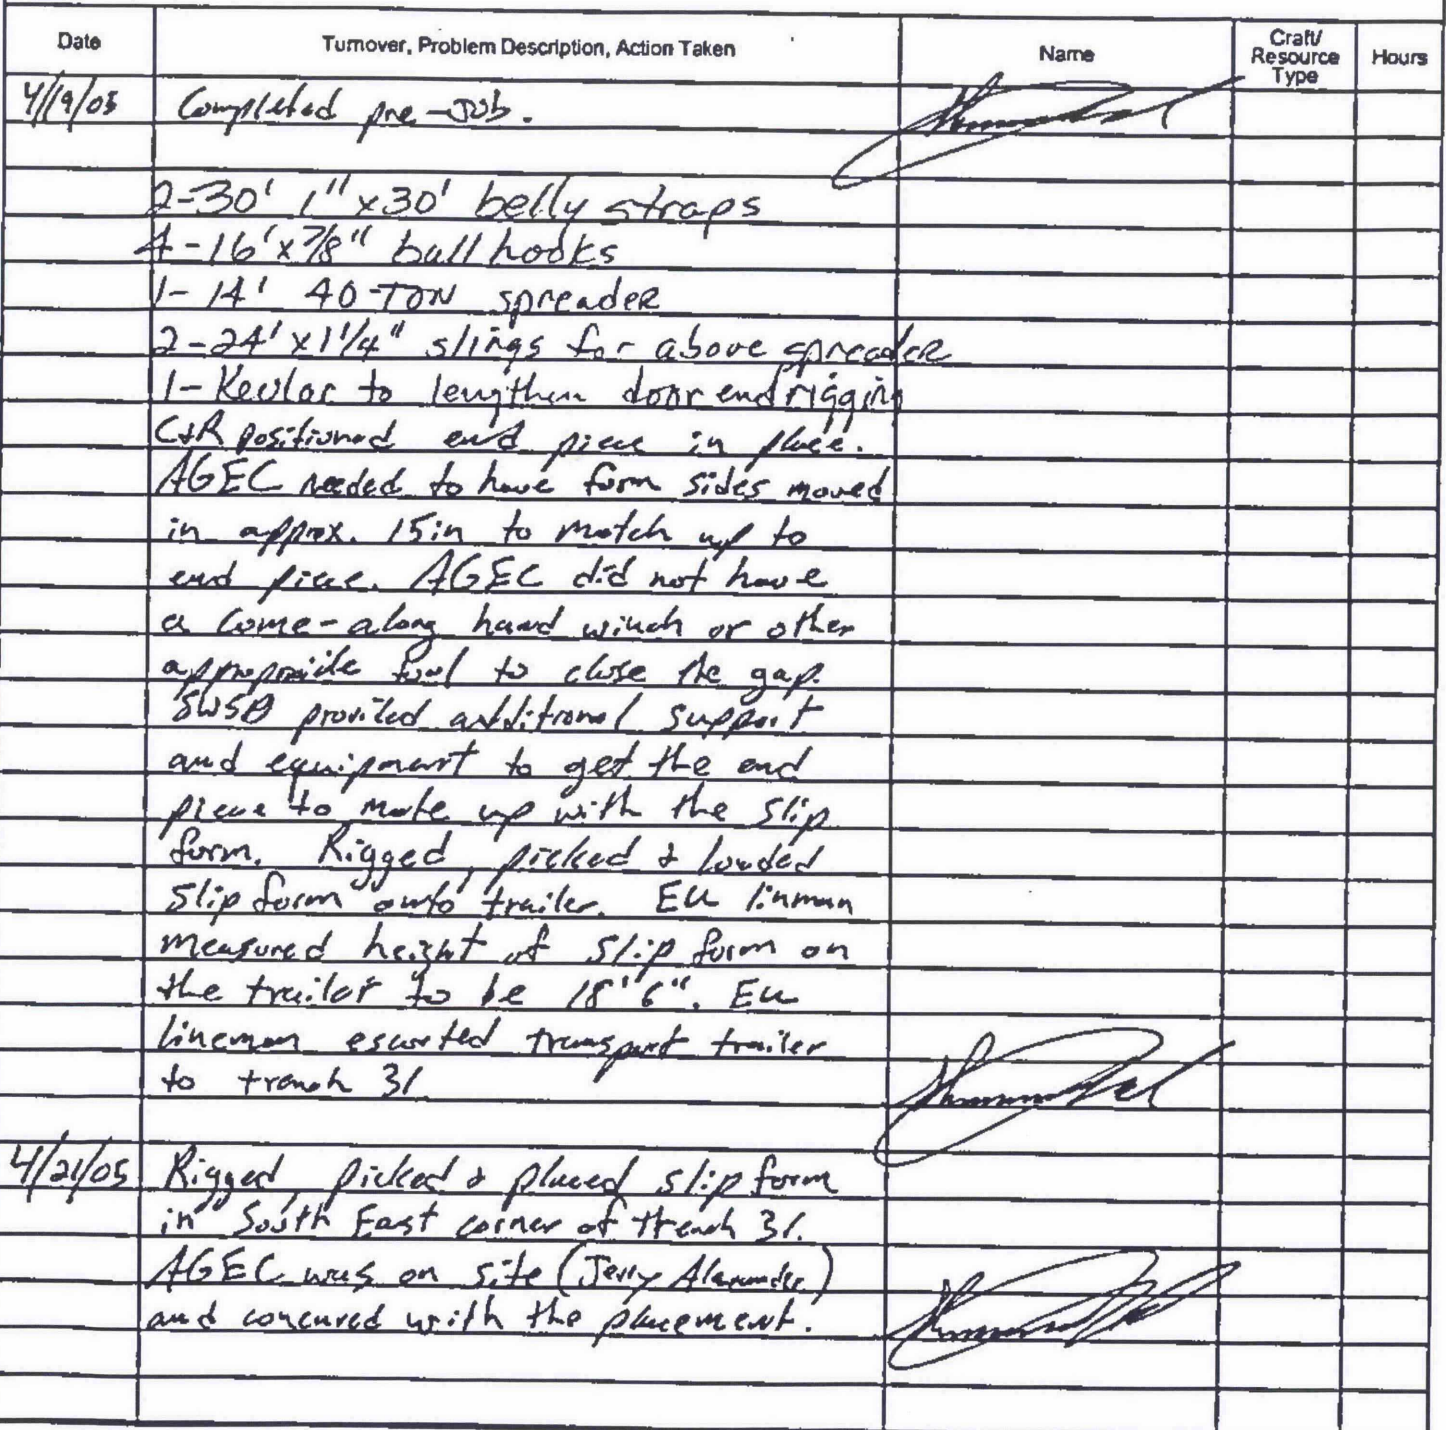 Date Turnover, Problem Description, Action Taken Name Craft/ Resource Type Hours
4/19/05 Completed pre-Job.
2-30' 1"x30' belly straps
4-16'x7/8" ball hooks
1-14' 40-TON spreader
2-24'x1 1/4" slings for above spreader
1-Kevlar to lengthen door end rigging
C&R positioned end piece in place.
AGEC needed to have form sides moved
in approx. 15in to match up to
end piece. AGEC did not have
a come-along hand winch or other
appropriate tool to close the gap.
provided additional support
and equipment to get the end
piece to mate up with the slip
form. Rigged, picked & loaded
slip form onto trailer. EU linman
measured height of slip form on
the trailer to be 18'6". EU
lineman escorted transport trailer
to trench 31
4/21/05 Rigged, picked & placed slip form
in South East corner of trench 31.
AGEC was on site (Jerry Alexander)
and concured with the placement.